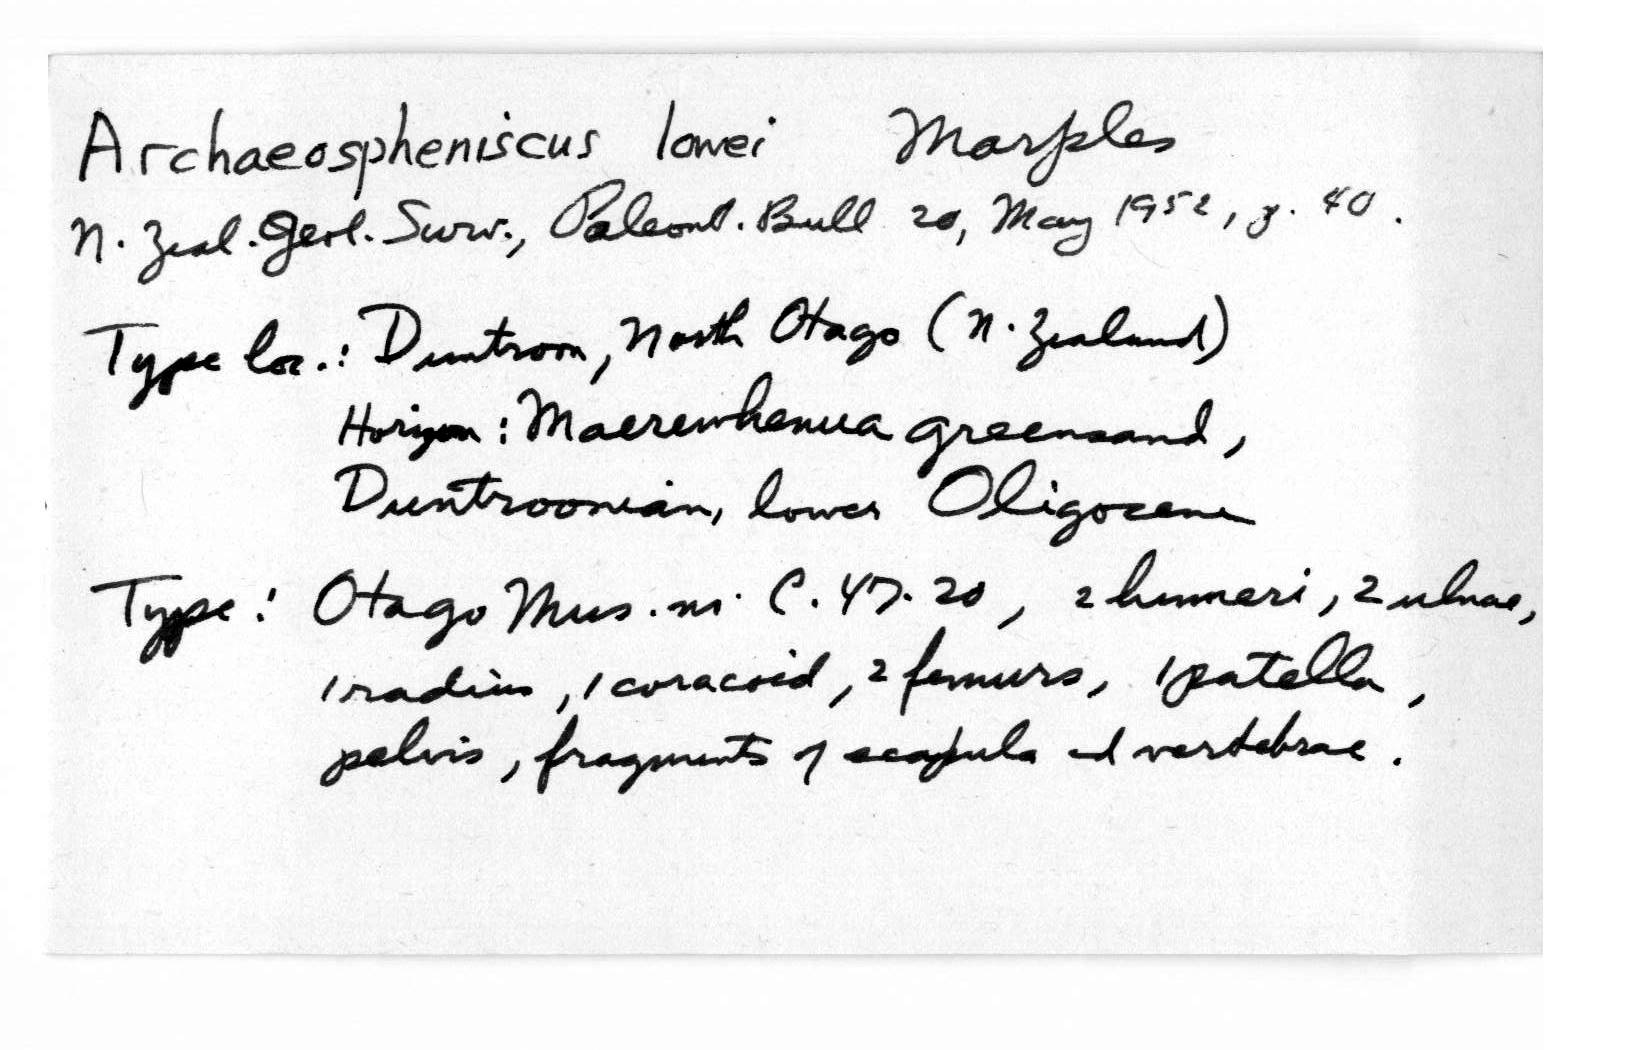 Archaeospheniscus lowei Marples
N. Zeal. Geol. Surv., Paleont. Bull 20, May 1952, p. 40.
Type loc.: Duntroon, North Otago (N. Zealand)
Horizon: Maerewhenua greensand,
Duntroonian, lower Oligocene
Type: Otago Mus. no. C. 47. 20, 2 humeri, 2 ulnae,
1 radius, 1 coracoid, 2 femurs, 1 patella,
pelvis, fragments of scapula and vertebrae.